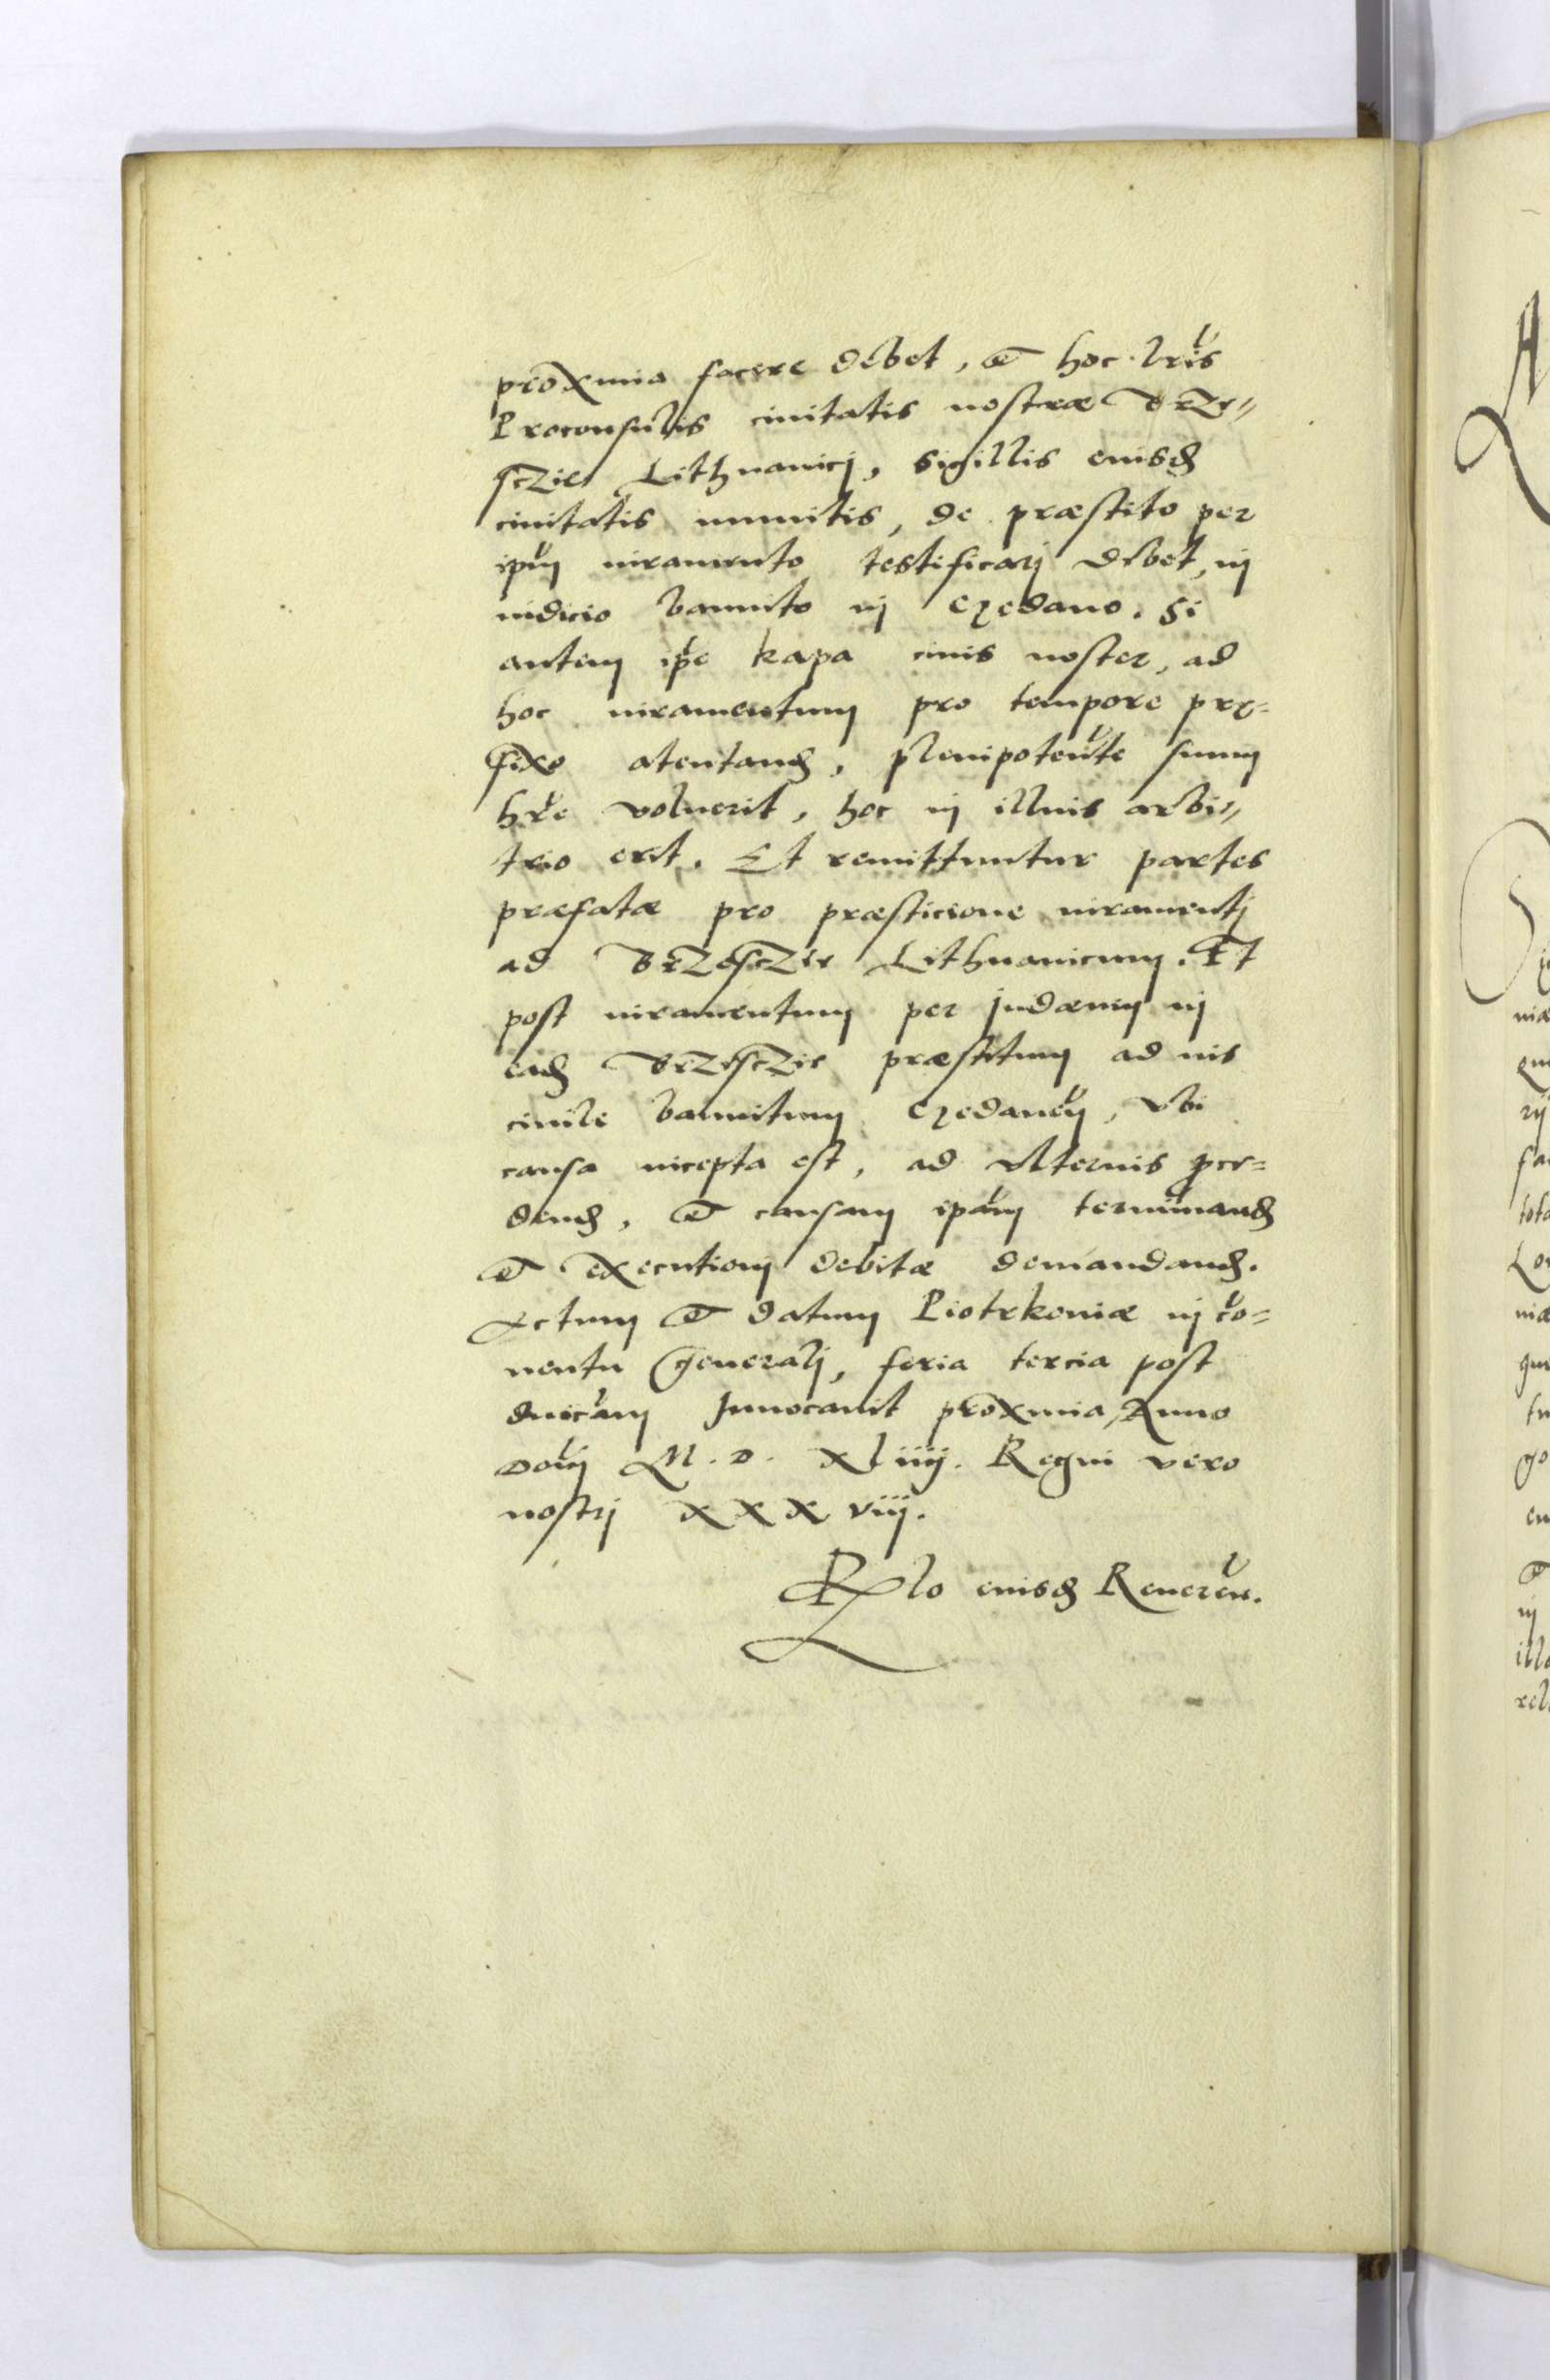 proxima facere debet, et hoc lr̃is
Proconsulis ciuitatis nostræ Brze-
sczie Lithuanicj, sigillis eiusd
ciuitatis munitis, de præstito per
ipm̃ iuramento testificarj debet, in
iudicio bannito in Czedano. Si
autem ip̃e kapa ciuis noster, ad
hoc iuramentum pro tempore præ-
fixo atentand, plenipotente͂ suum
hr̃e voluerit, hoc in illius arbi-
trio erit. Et remittuntur partes
præfatæ pro præsticione iuramentj
ad Brzesczie Lithuanicum. Et
post iuramentum per judæum in
ead Brzesczie præstitum ad ius
ciuile bannitum Czedanen̄, vbi
causa incepta est, ad vlterius proce-
dend, et causam ipam̃ terminand
et executioni debitæ demandand.
Actum et datum Piotrkouiæ in co͂-
uentu Generalj, feria tercia post
dnicam̃ Inuocauit proxima, Anno
Dom̃ M. D. XLiiij. Regni vero
nostrj XXXviij.
Rlo eiusd Reueren̄.